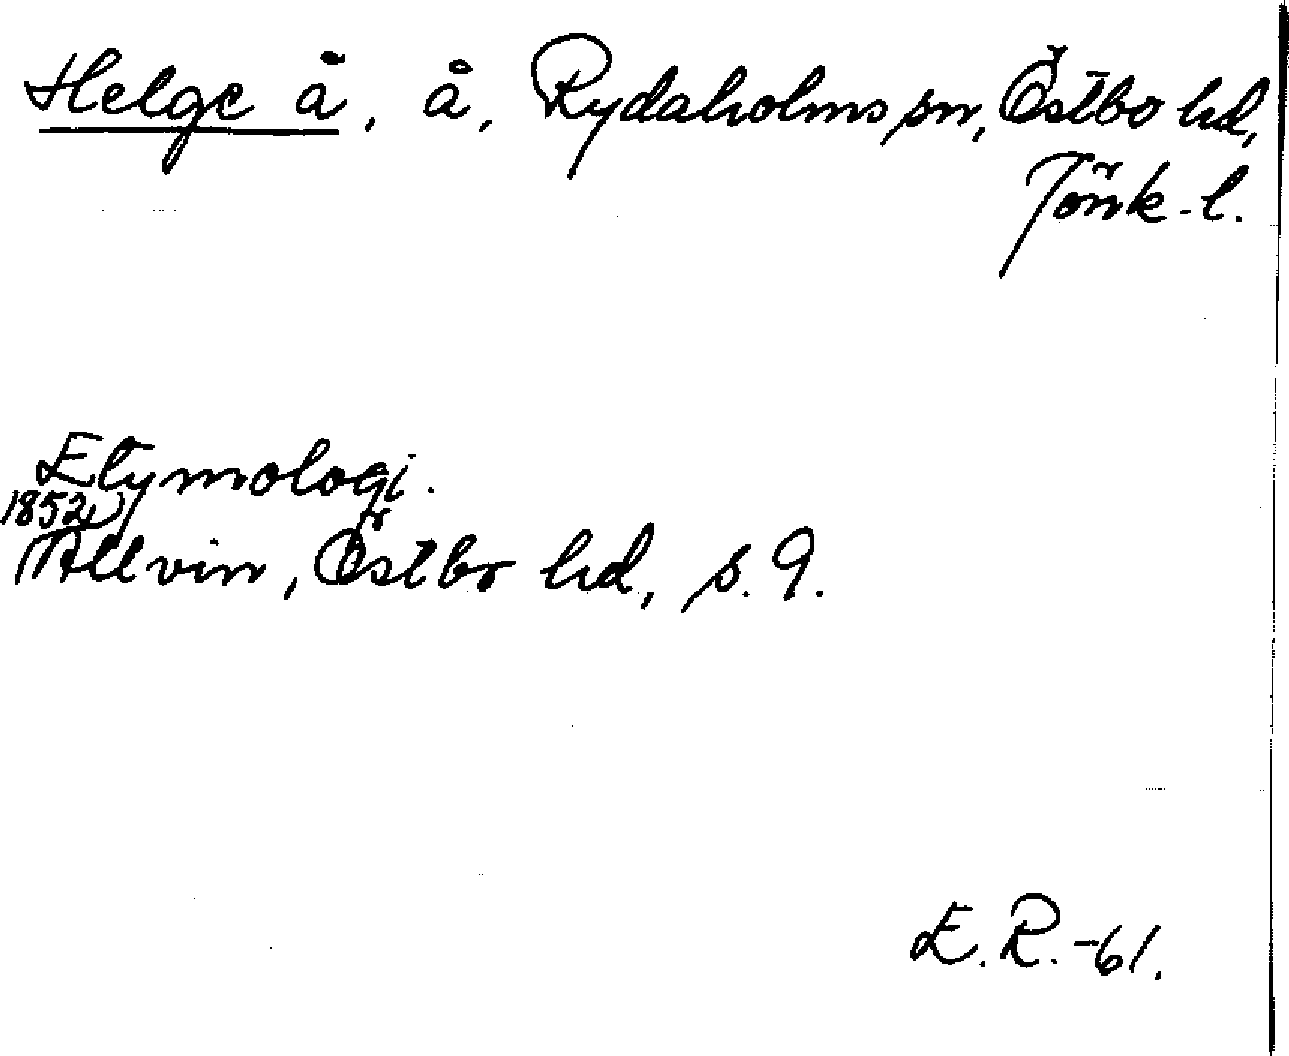 Helge å, å, Rydaholms sn, Östbo hd,
Jönk. l.
Etymologi.
1852,
Allvin, Östbo hd, s. 9.
E. R. -61.